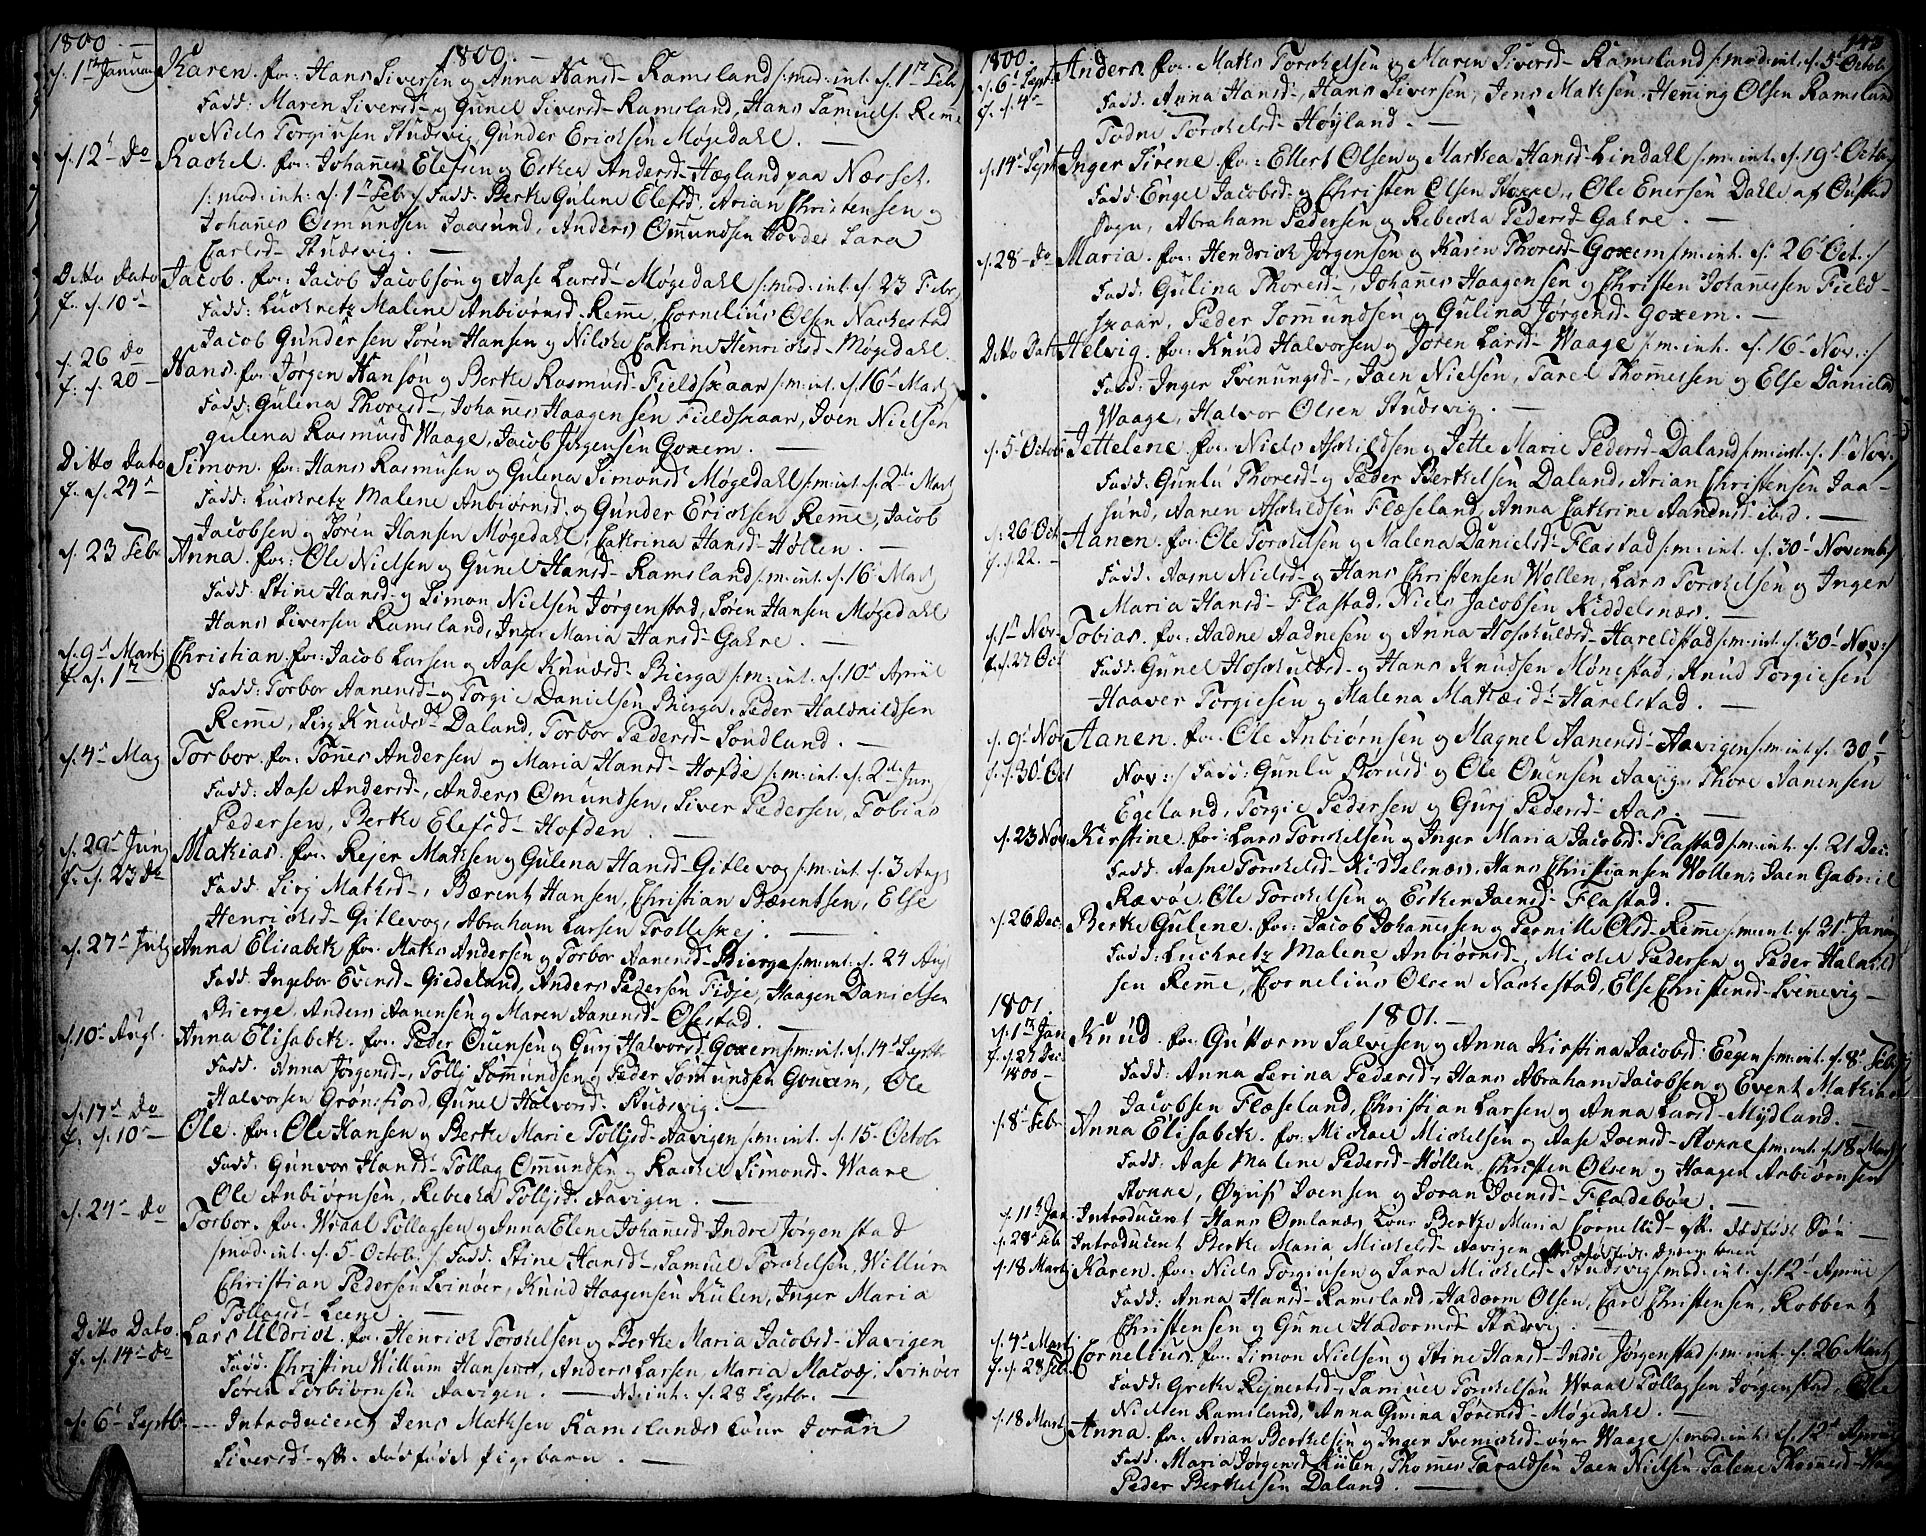 1800. —
1800. —
d. 1te Januar Karen. for: Hans Siversen og Anna Hansd– Ramsland /:mod: int. d. 1te Feb/
Fadd: Maren Siversd– og Gunel Siversd– Ramsland, Hans Samuels. Remme
Niels Torgiusen Studsvig Gunder Ericksen Møgedahl. —
d. 12t Do Rachel. for: Johanes Elefsen og Ester Andersd– Høgland paa Næsset.
/:mod: int: d. 1te Feb:/ Fadd: Berte Gulene Elefsd, Arian Christensen og
Johanes Osmundsen Jaasund, Anders Omundsen Hovde, Sara
Carlsd– Studsvig. —
Ditto Dato Jacob. for: Jacob Jacobsøn og Aase Larsd– Møgedahl /:mod: int. d. 23 Febr/
f. d. 10d– Fadd: Luckretz Malene Anbiørnsd. Remme, Cornelius Olsen Nackestad
Jacob Gundersen Sørén Hansen og Nilske Cathrine Henricksd– Møgedahl
d. 26 do Hans. for: Jørgen Hansøn og Berte Rasmusd– Fieldskaar /:m: int. d. 16d Mart/
f. d. 20– Fadd: Gulena Thoresd–, Johanes Haagensen Fieldskaar, Joen Nielsen
gulena Rasmusd Waage, Jacob Jørgensen Goxem. —
Ditto Dato Simon. for: Hans Rasmusen og Gulena Simonsd Møgedahl /:m: int d. 2de Mart/
f. d. 24d Fadd: Luckretz Malene Anbiørnsd. og Gunder Ericksen Remme, Jacob
Jacobsen og Sørén Hansen Møgedahl, Cathrina Hansd– Høllen. —
d. 23 Febr Anna. for: Ole Nielsen og Gunel Hansd– Ramsland /:m: int: d. 16d Mart/
Fadd: Stine Hansd– og Simon Nielsen Jørgenstad, Sørén Hansen Møgedahl
Hans Siversen Ramsland, Inger Maria Hansd– Gahre. —
d. 9d Martj Christian. for: Jacob Larsen og Aase Knudsd– Bierga /:m: int. d. 10d April
f. d. 1te Fadd: Torbor Aanensd– og Torgie Danielsen Bierga, Peder Halvildsen
Remme, Sirj Knudsd– Daland, Torbor Pedersd– Sondland. —
d. 4d May Torbor. for: Tønes Andersen og Maria Hansd– Hofde /:m: int. d. 2de Junj
Fadd: Aase Andersd–, Anders Omundsen, Siver Pedersen, Tobias
Pedersen, Berte Elefsd– Hofden. —
d. 29d Junj Mathias. for: Rejer Mathsen og Gulena Hansd– Gitlevog /:m: int. d. 3 Aug/
f. d. 23 do Fadd. Sirj Mathsd–, Bærent Hansen, Christian Bærentsen, Else
Henricksd– Gitlevog, Abraham Larsen Trolleskej. —
d. 27d Julj Anna Elisabeth. for: Maths Andersen og Torbor Aanensd– Bierge /:m: int: d. 24 Aug/
Fadd. Ingebor Evensd– Giedeland, Anders Pedersøn Tidje, Haagen Danielsen
Bierge, Anders Aanensen og Maren Aanensd– Ølestad. —
d. 10d Augt. Anna Elisabeth. for: Peder Ouensen og Gurj Halvorsd. Goxem /:m: int. d. 14d Septbr
Fadd. Anna Jørgensd–, Tollj Somundsen og Peder Somundsen Goxem, Ole
Halvorsen Grønsfiord, Gunel Halvorsd. Studsvig. —
d. 17d Do Ole. for: Ole Hansen og Berte Marie Tolljsd– Aavigen /:m: int. d. 15– Octobr
f. d. 10d– Fadd: Gunvor Hansd– Tollag Omundsen og Rachel Simonsd– Waare
Ole Anbiørnsen, Rebecka Tolljsd. Aavigen. —
d. 24d do Torbor. for: Wraal Tollagsen og Anna Elene Johanesd– Indre Jørgenstad
/:mod: int. d. 5– Octobr./ Fadd: Stine Hansd–, Samuel Torckelsen, Willum
Christian Pedersen Svinøer, Knud Haagensen Kulen, Inger Maria
Tollagsd– Leene. —
Ditto Dato Lars Uldrick. for: Henrick Torckelsen og Berte Maria Jacobsd– Aavigen
f. d. 14d do Fadd: Christine Willum Hansens, Anders Larsen, Maria Macodj Svinøer
Søren Torbiørnsen Aavigen. — M: int: d. 28 Septbr. —
d. 6d Septbr — Introduceret Jens Mathsen Ramslands Kone Joran
Siversd– efter dødfødt pigebarn. —
1800. —
d. 6d Septbr Anders. for: Maths Torckelsen og Maren Siversd– Ramsland /:mod: int. d. 5d Octob/
f. d. 4d– Fadd: Anna Hansd–, Hans Siversen, Jens Mathsen, Hening Olsen Ramsland
Todne Torckelsd– Høyland. —
d. 14d Septb Inger Sirene. for: Ellert Olsen og Marthea Hansd– Lindahl /:m: int. d. 19d Octb.
Fadd: Engel Jacobsd– og Christen Olsen Stokke, Ole Enersen Dahle af Øustad
Sogn, Abraham Pedersen og Rebecka Pedersd– Gahre. —
d. 28d Do Maria. for: Hendrick Jørgensen og Karen Thoresd– Goxem /:m: int. d. 26d Oct:/
Fadd: Gulina Thoresd–, Johanes Haagensen og Christen Johanesen Field-
skaar, Peder Somundsen og Gulina Jørgensd– Goxem. —
Ditto Dato Helvig. for: Knud Halvorsen og Joren Larsd– Waage /:m: int. d. 16d Nov:/
Fadd: Inger Svenungsd–, Jaen Nielsen, Tarel Thomesen og Else Danielsd
Waage, Halvor Olsen Studsvig. —
d. 5d Octobr Jettelene. for: Niels Aschildsen og Jette Marie Pedersd– Daland /:m: int. d. 1te Nov:/
Fadd: Gunlu Thoresd– og Peder Berthelsen Daland, Arian Christensen Jaa-
sund, Aanen Aschildsen Flæseland, Anna Cathrine Aanensd ibid. —
d. 26 Oct Aanen. for: Ole Torckelsen og Malena Danielsd– Flastad /:m: int. d. 30d Novemb/
f. d. 22.– Fadd: Aasne Nielsd– og Hans Christensen Wollen, Lars Torckelsen og Inger
Maria Hansd– Flastad, Niels Jacobsen Riddelsnæs. —
d. 1te Nov. Tobias. for: Aadne Aadnesen og Anna Hoskuldsd– Harelstad /:m: int. d. 30d Nov:/
f. d. 27 Oct Fadd: Gunel Hoskuldsd– og Hans Knudsen Mønestad, Knud Torgiesen
Haaver Torgiesen og Malena Mathæsd– Harelstad. —
d. 9d Nov Aanen. for: Ole Anbiørnsen og Magnel Aanensd– Aavigen /:m: int. d. 30d
f. d. 30d Oct Nov:/ Fadd: Gunlu Berusd– og Ole Ouensen Aavig, Thore Aanensen
Egeland, Torgie Pedersen og Gurj Pedersd– Aas. —
d. 23 Nov Kirstine. for: Lars Torckelsen og Inger Maria Jacobsd– Flastad /:m: int. d. 21 Dec.
Fadd: Aasne Torckelsd– Riddelsnæs, Hans Christiansen Wollen, Jaen Gabriel
Rævøe, Ole Torckelsen og Ester Joensd– Flastad. —
d. 26 Dec. Berte Gulene. for: Jacob Johanesen og Pernille Olsd– Remme /:m: int d. 31te Janu
Fadd: Luckretz Malene Anbiørnsd–, Mickel Pedersen og Peder Halvild
sen Remme, Cornelius Olsen Nackestad, Else Christensd– Svenevig —
1801.
1801. —
d. 1te Jan Knud. for: Guttorm Salvesen og Anna Kirstina Jacobsd: Eegen /:m: int. d. 8d Feb/
f. d. 27 Dec Fadd: Anna Serina Pedersd–, Hans Abraham Jacobsen og Event Mathias
1800 — Jacobsen Flæseland, Christian Larsen og Anna Larsd– Mydland. —
d. 8d Febr Anna Elisabeth. for: Mickael Mickelsen og Aase Joensd– Stokke /:m: int. d. 18 Mart/
Fadd: Aase Malene Pedersd– Høllen, Christen Olsen og Haagen Anbiørnsen
Stokke, Øyuf Joensen og Joran Joensd– Fladebøe. —
d. 11te Jan. Introduceret Hans Omlands Kone Berte Maria Cornelisd– efter dødfødt Søn —
d. 28d Feb. Introduceret Berte Maria Mickelsd– Aavigen efter dødfødt Drenge Barn
d. 18 Martj Karen. for: Niels Torgiusen og Sara Mickelsd– Studsvig /:mod: int. d. 12d April/
Fadd: Anna Hansd– Ramsland, Hadorm Olsen, Carl Christensen, Robbert
Christensen og Gunel Hadormsd Studsvig. —
d. 4d Martj Cornelius. for: Simon Nielsen og Stine Hansd– Indre Jørgenstad /:m: int. d. 26 Martj
f. d. 28 Feb. Fadd: Grethe Rejnertsd–, Samuel Torckelsen Wraal Tollagsen Jørgenstad, Ole
Nielsen Ramsland, Anna Gunina Sørensd– Møgedahl. —
d. 18 Mart Anna. for: Arian Berthelsen og Inger Svenichsd– øvre Waage /:mod: int: d. 12d April
Fadd: Maria Jørgensd Kulen, Thomes Taraldsen Jaen Nielsen, Talene Thomesd– Waage
Peder Berthelsen Daland. —